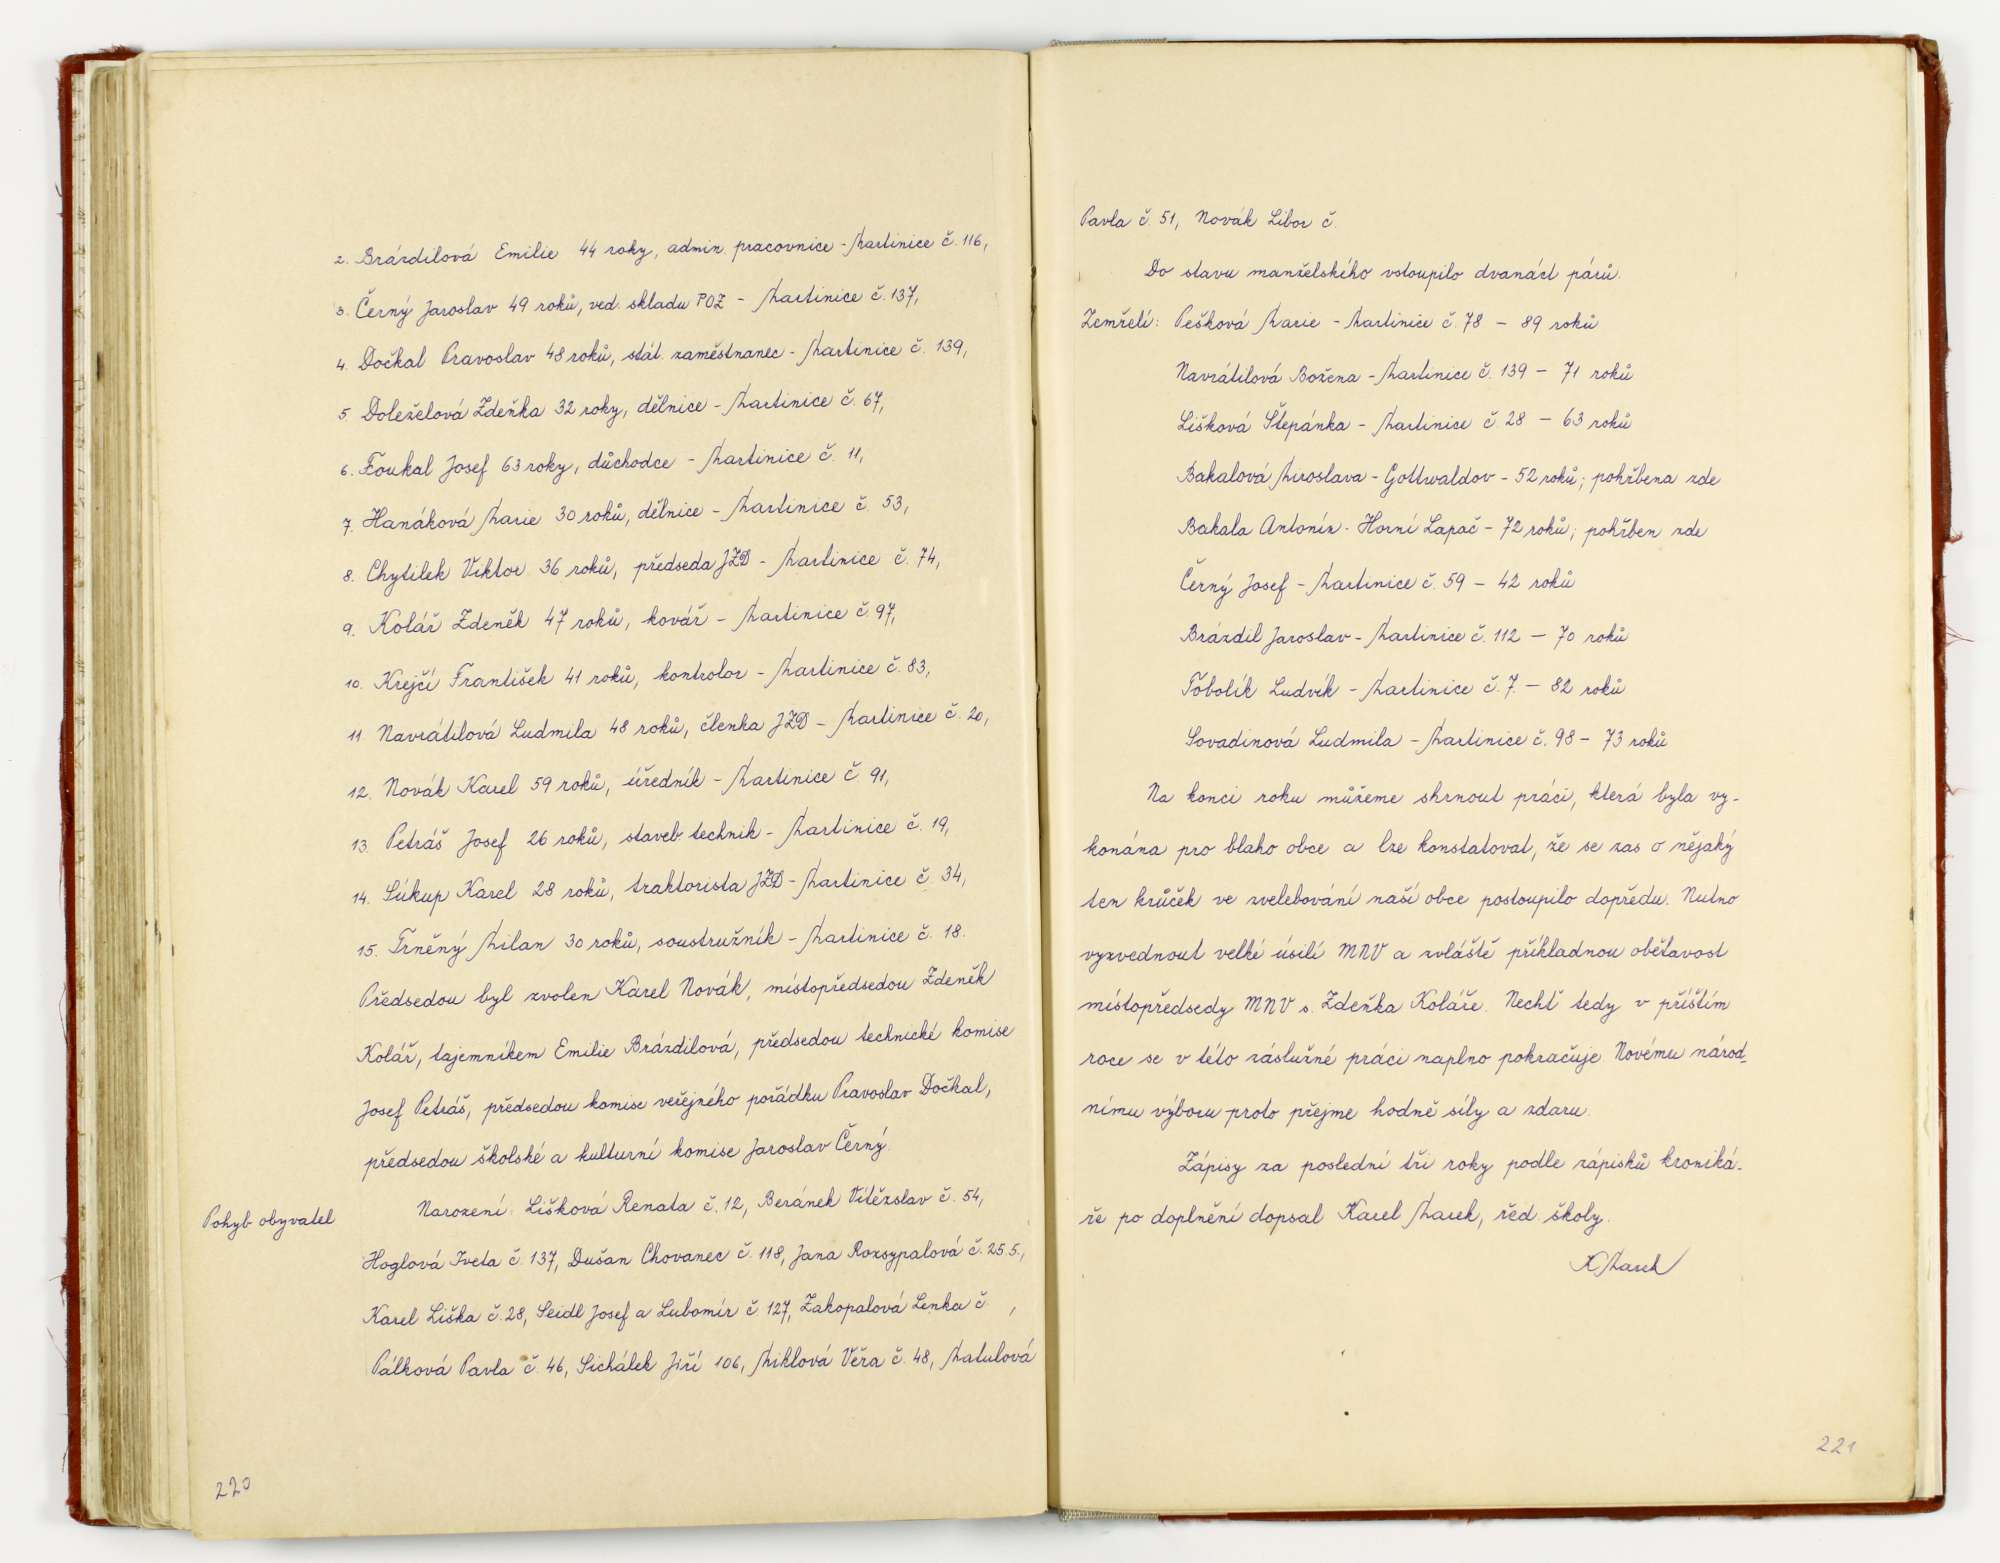 2. Brázdilová Emilie 44 roky, admin. pracovnice - Martinice č. 116,
3. Černý Jaroslav 49 roků, ved. skladu POZ - Martinice č. 137,
4. Dočkal Pravoslav 48 roků, stát. zaměstnanec - Martinice č. 139,
5. Doleželová Zdeňka 32 roky, dělnice - Martinice č. 67,
6. Foukal Josef 63 roky, důchodce - Martinice č. 11,
7. Hanáková Marie 30 roků, dělnice - Martinice č. 53,
8. Chytilek Viktor 36 roků, předseda JZD - Martinice č. 74,
9. Kolář Zdeněk 47 roků, kovář - Martinice č. 97,
10. Krejčí František 41 roků, kontrolor - Martinice č. 83,
11. Navrátilová Ludmila 48 roků, členka JZD - Martinice č. 20,
12. Novák Karel 59 roků, úředník - Martinice č. 91,
13. Petráš Josef 26 roků, staveb. technik - Martinice č. 19,
14. Súkup Karel 28 roků, traktorista JZD - Martinice č. 34,
15. Trněný Milan 30 roků, soustružník - Martinice č. 18.
Předsedou byl zvolen Karel Novák, místopředsedou Zdeněk
Kolář, tajemníkem Emilie Brázdilová, předsedou technické komise
Josef Petráš, předsedou komise veřejného pořádku Pravoslav Dočkal,
předsedou školské a kulturní komise Jaroslav Černý.
Pohyb obyvatel
Narození: Lišková Renata č. 12, Beránek Vítězslav č. 54,
Hoglová Iveta č. 137, Dušan Chovanec č. 118, Jana Rozsypalová č. 25.5.,
Karel Liška č. 28, Seidl Josef a Lubomír č. 127, Zakopalová Lenka č. ,
Pálková Pavla č. 46, Sichálek Jiří 106, Miklová Věra č. 48, Matulová
220
Pavla č. 51, Novák Libor č.
Do stavu manželského vstoupilo dvanáct párů.
Zemřelí: Pešková Marie - Martinice č. 78 - 89 roků
Navrátilová Božena - Martinice č. 139 - 71 roků
Lišková Štěpánka - Martinice č. 28 - 63 roků
Bakalová Miroslava - Gottwaldov - 52 roků; pohřbena zde
Bakala Antonín - Horní Lapač - 72 roků; pohřben zde
Černý Josef - Martinice č. 59 - 42 roků
Brázdil Jaroslav - Martinice č. 112 - 70 roků
Tobolík Ludvík - Martinice č. 7. - 82 roků
Sovadinová Ludmila - Martinice č. 98 - 73 roků
Na konci roku můžeme shrnout práci, která byla vy-
konána pro blaho obce a lze konstatovat, že se zas o nějaký
ten krůček ve zvelebování naší obce postoupilo dopředu. Nutno
vyzvednout velké úsilí MNV a zvláště příkladnou obětavost
místopředsedy MNV s. Zdeňka Koláře. Nechť tedy v příštím
roce se v této záslužné práci naplno pokračuje. Novému národ-
nímu výboru proto přejme hodně síly a zdaru.
Zápisy za poslední tři roky podle zápisků kroniká-
ře po doplnění dopsal Karel Marek, řed. školy.
K Marek
221